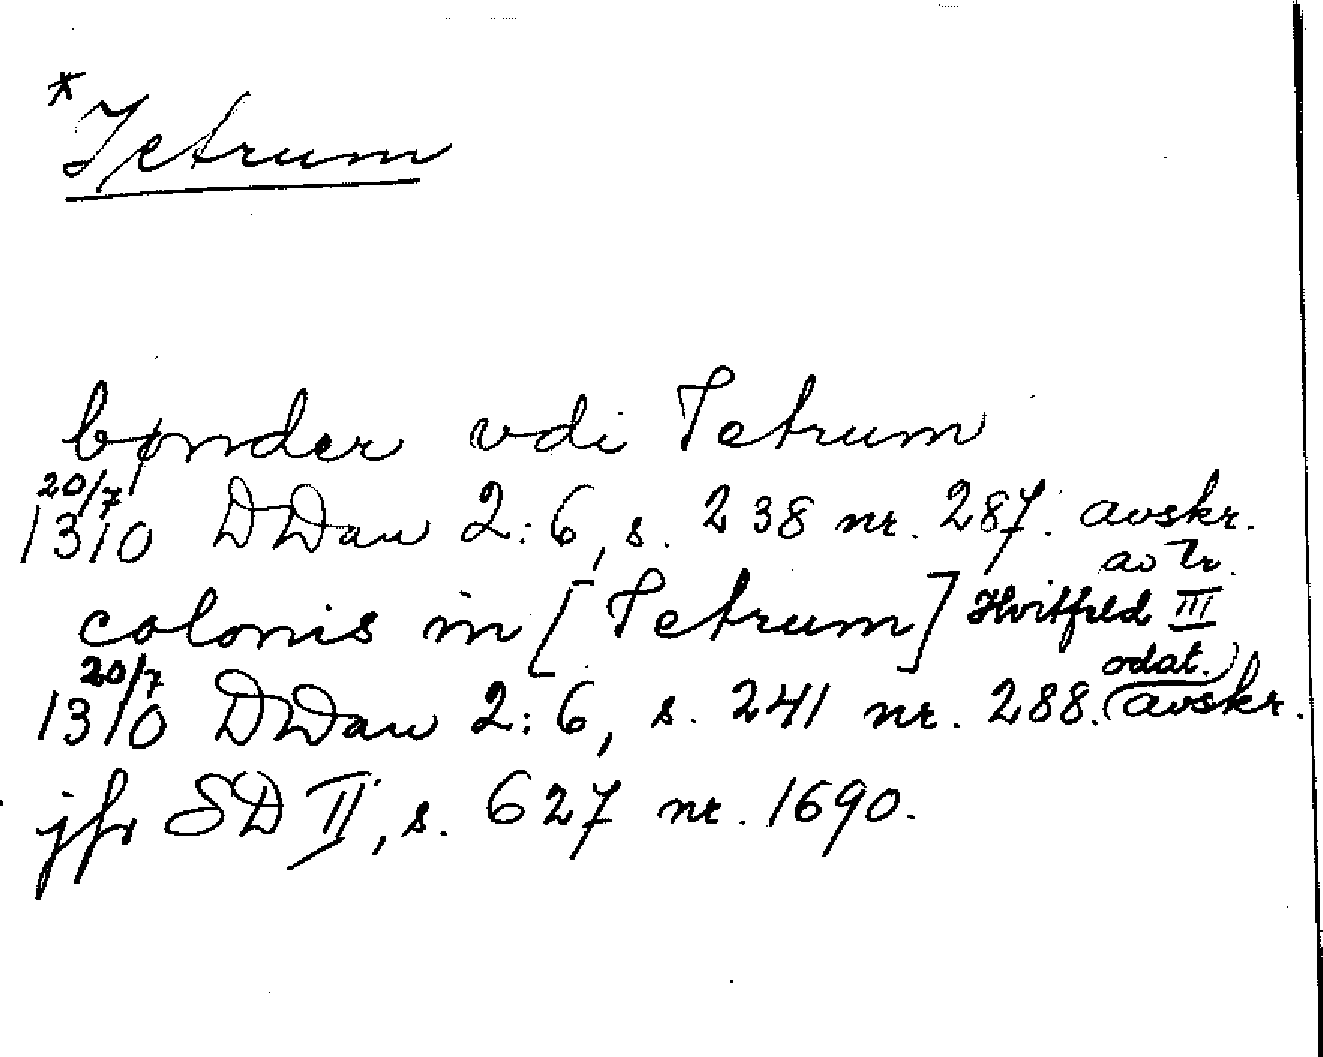 *Tetrum
bønder vdi Tetrum
20/7
1310 DDan 2:6, s. 238 nr. 287. avskr.
av Tr.
colonis in [Tetrum] Hvitfeld III
20/7 odat.)
1310 DDan 2:6, s. 241 nr. 288. (avskr.
jfr SD II, s. 627 nr. 1690.